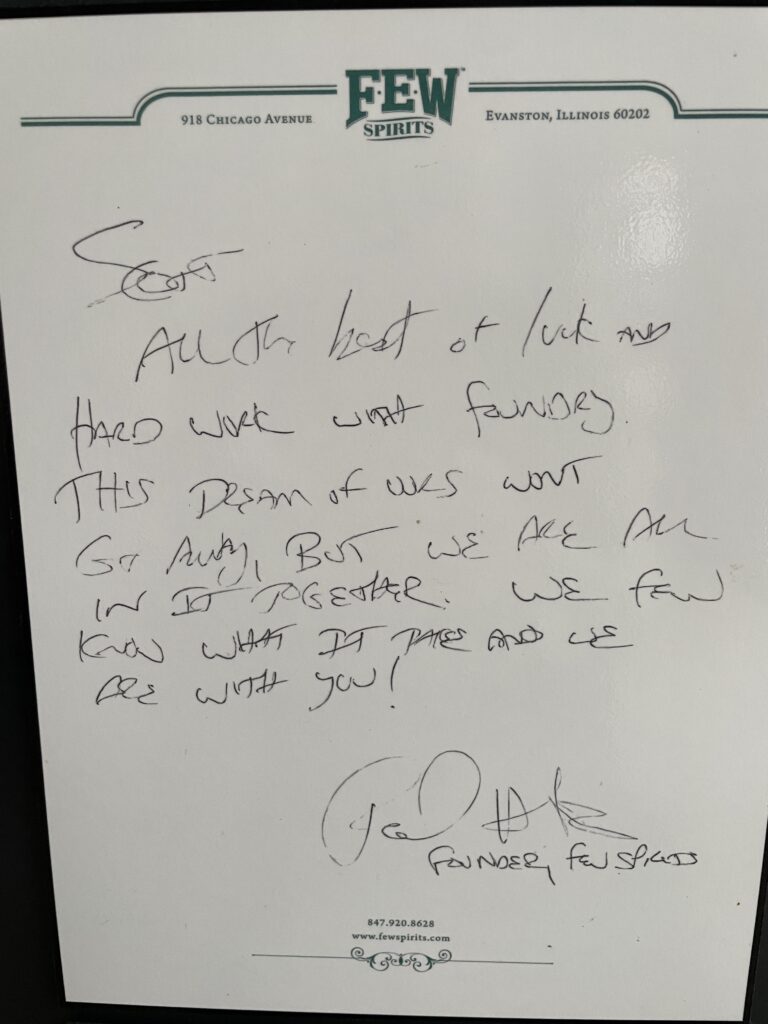 F.E.W
SPIRITS
918 CHICAGO AVENUE
EVANSTON, ILLINOIS 60202
Scott
ALL the best of luck AND
HARD WORK WITH FOUNDRY.
THIS DREAM OF OURS WONT
GO AWAY, BUT WE ARE ALL
IN IT TOGETHER. WE FEW
KNOW WHAT IT TAKES AND WE
ARE WITH YOU!
FOUNDER, FEW SPIRITS
847.920.8628
www.fewspirits.com